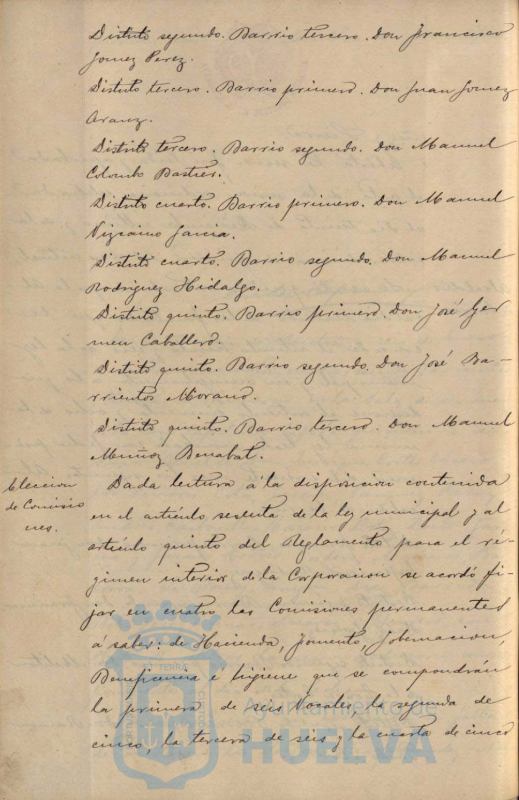 Distrito segundo. Barrio tercero. Don Francisco
Gomez Perez.
Distrito tercero. Barrio primero. Don Juan Gomez
Aranz.
Distrito tercero. Barrio segundo. Don Manuel
Colombo Bastier.
Distrito cuarto. Barrio primero. Don Manuel
Vizcaino Garcia.
Distrito cuarto. Barrio segundo. Don Manuel
Rodriguez Hidalgo.
Distrito quinto. Barrio primero. Don José Ger
men Caballero.
Distrito quinto. Barrio segundo. Don José Ba-
rrientos Morano.
Distrito quinto. Barrio tercero. Don Manuel
Muñoz Benabat.
Eleccion
de Comisio
nes.
Dada lectura á la disposicion contenida
en el artículo sesenta de la ley municipal y al
artículo quinto del Reglamento para el ré-
gimen interior de la Corporacion se acordó fi-
jar en cuatro las Comisiones permanentes
á saber: de Hacienda, Fomento, Gobernacion,
Beneficencia e higiene que se compondrán
la primera de seis Vocales, la segunda de
cinco, la tercera de seis y la cuarta de cinco
Ayuntamiento de
HUELVA